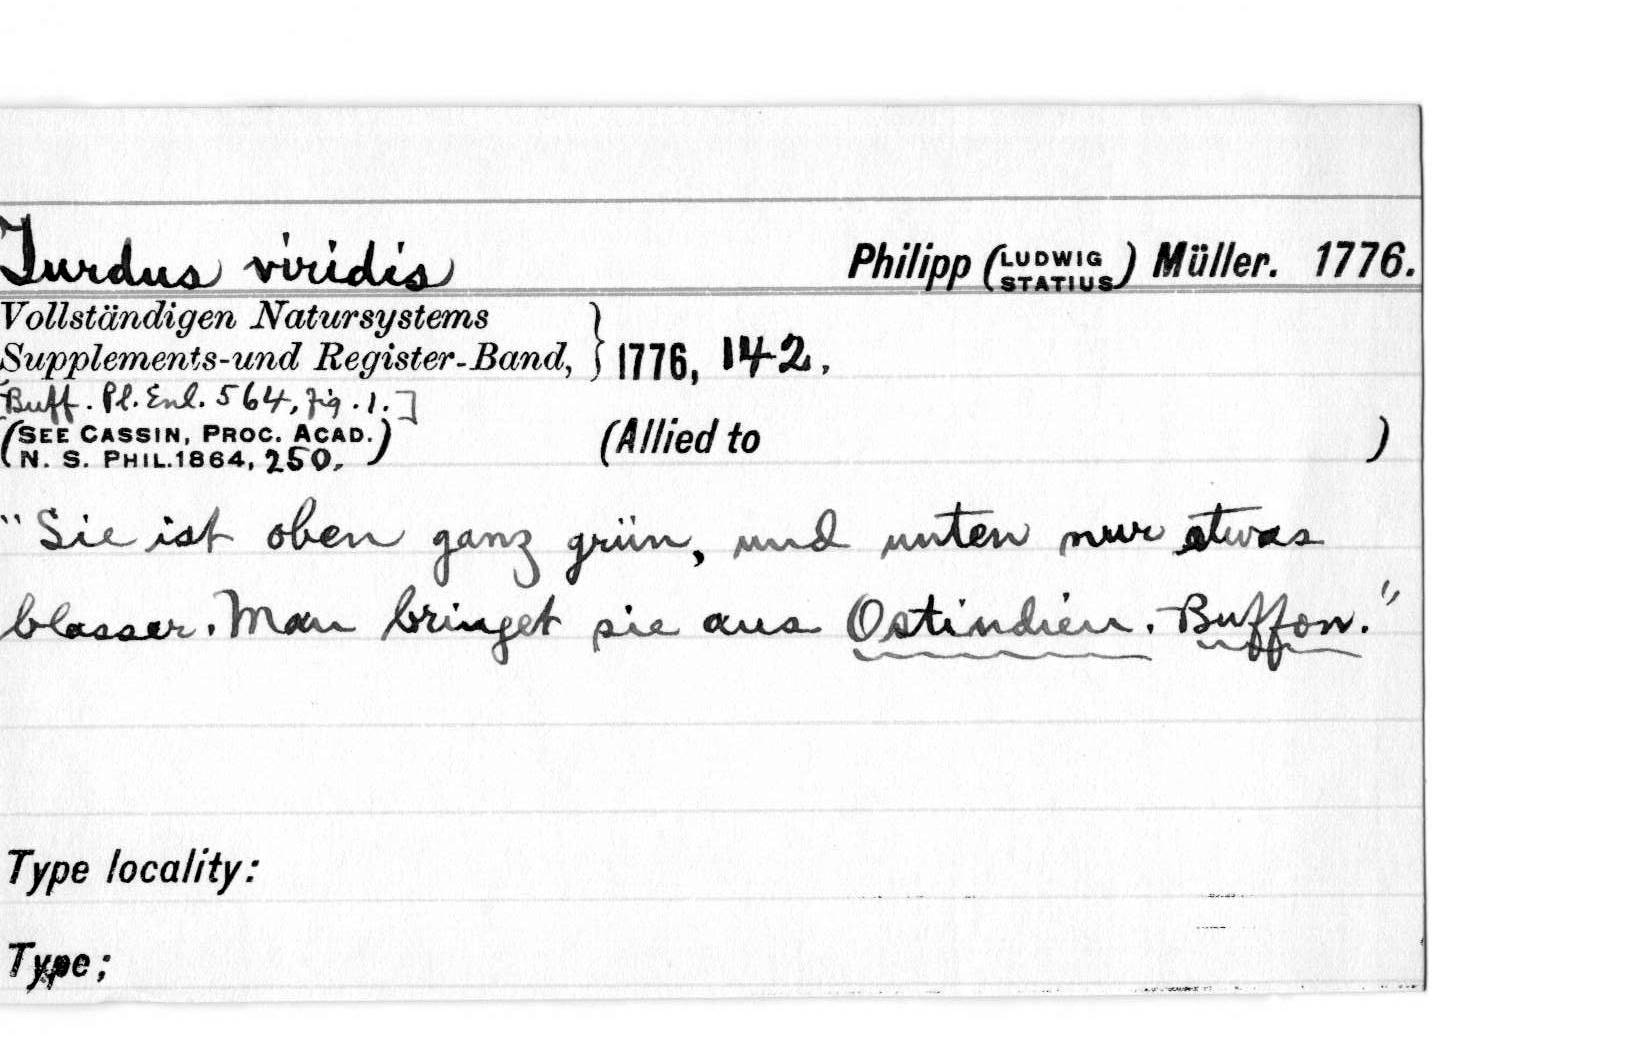 Turdus viridis Philipp (LUDWIG STATIUS) Müller. 1776.
Vollständigen Natursystems
Supplements-und Register-Band, } 1776, 142.
[Buff. Pl. Enl. 564, fig. 1.]
(SEE CASSIN, PROC. ACAD.
N. S. PHIL. 1864, 250.) (Allied to )
"Sie ist oben ganz grün, und unten nur etwas
blasser. Man bringet sie aus Ostindien. Buffon."
Type locality:
Type;